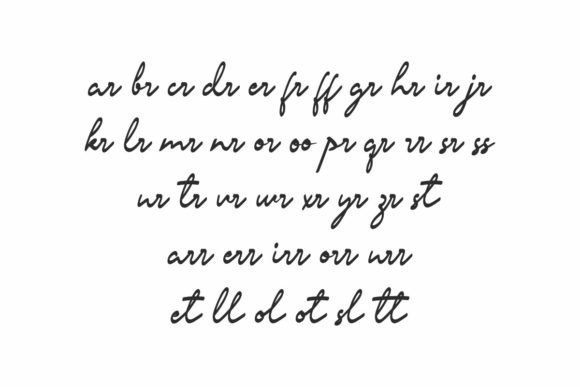 ar br cr dr er fr ff gr hr ir jr
kr lr mr nr or oo pr qr rr sr ss
ur tr vr wr xr yr zr st
arr err irr orr urr
et ll ol ot sl tt